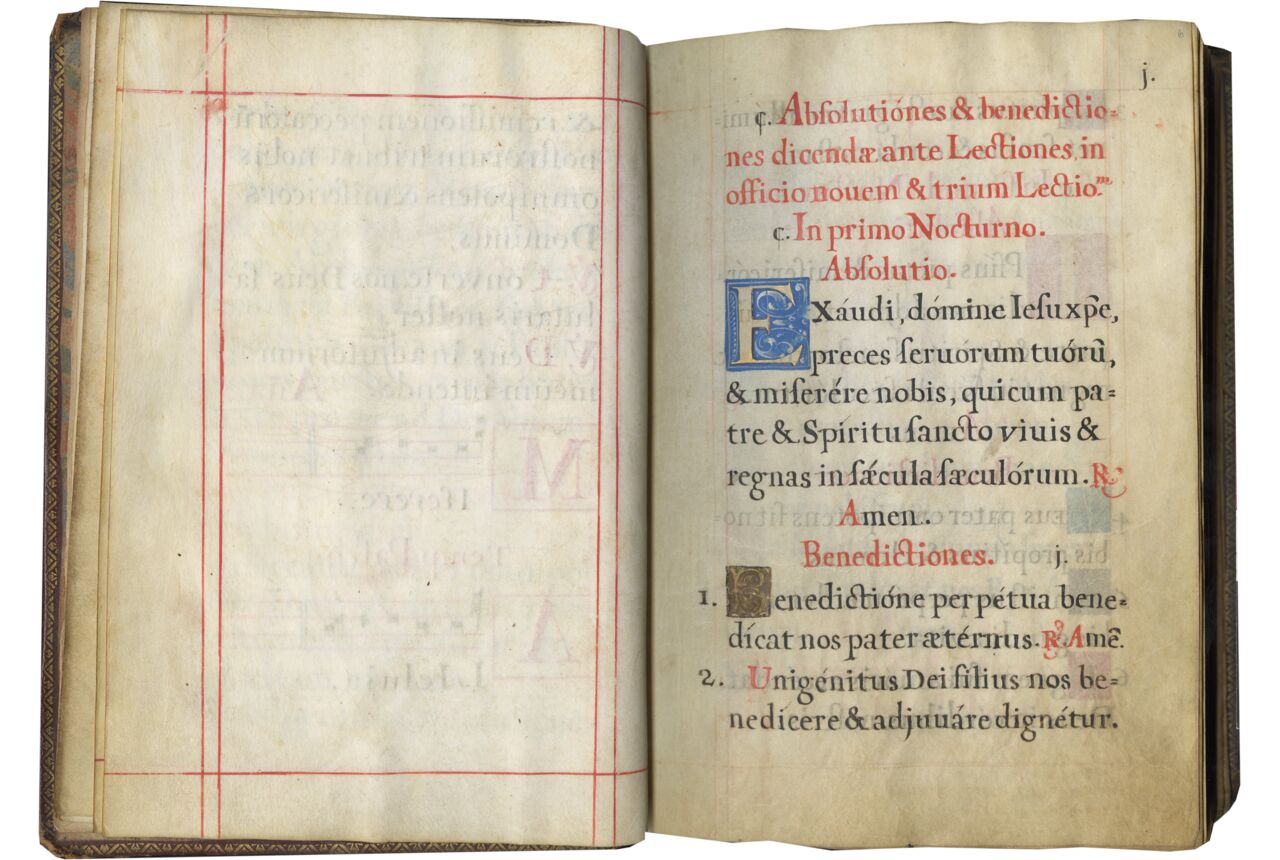 6
j.
c. Abſolutiónes & benedictio=
nes dicendæ ante Lectiones in
officio nouem & trium Lectio.ᵐ
c. In primo Nocturno.
Abſolutio.
EXáudi, dómine Ieſu xp̄e,
preces ſeruorum tuórū,
& miſerére nobis, qui cum pa=
tre & Spíritu ſancto viuis &
regnas in ſǽcula ſæculórum. ℟
Amen.
Benedictiones. j.
1. Benedictióne perpétua bene=
dícat nos pater ætérnus. ℟. Amē.
2. Unigénitus Dei filius nos be=
nedicere & adjuuáre dignétur.